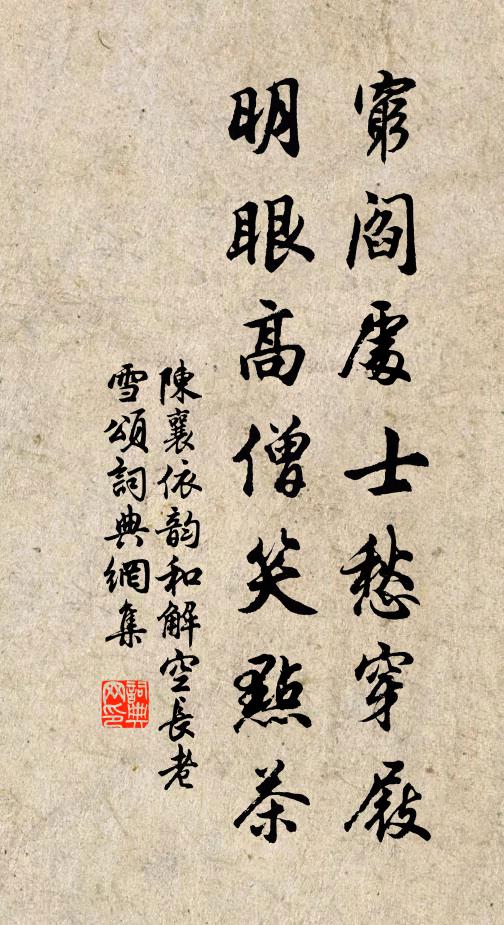 窮閻處士愁穿屐
明眼高僧笑點茶
陳襄依韵和解空長老
雪頌詞典網集
詞典网印